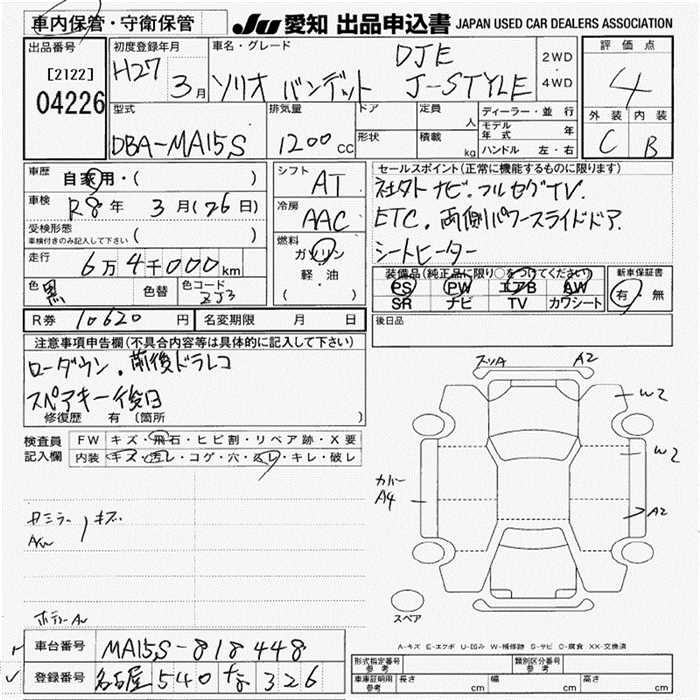 車内保管・守衛保管
JU 愛知 出品申込書 JAPAN USED CAR DEALERS ASSOCIATION
出品番号 [2122] 04226
初度登録年月 H27 3月
車名・グレード DJE
ソリオ バンデット J-STYLE
2WD・4WD
評価点 4
外装 C 内装 B
型式 DBA-MA15S
排気量 1200 CC
ドア 形状
定員 人
積載 kg
ディーラー・並行
モデル年式 年
ハンドル 左・右
車歴 自家用・( )
車検 R8年 3月(26日)
受検形態 ( )
車検付きのみ記入して下さい
走行 6万4千000km
色 黒 色替 色コード ZJ3
シフト AT
冷房 AAC
燃料 ガソリン
軽・油
( )
セールスポイント(正常に機能するものに限ります)
社外ナビ・フルセグTV.
ETC.両側パワースライドドア.
シートヒーター
装備品(純正品に限り○をつけてください) 新車保証書
PS PW エアB AW
SR ナビ TV カワシート
有・無
R券 10620円 名変期限 月 日
後日品
注意事項申告欄(不具合内容等は具体的に記入して下さい)
ローダウン.前後ドラレコ
スペアキー後日
修復歴 有 (箇所 )
検査員記入欄
FW キズ・飛石・ヒビ割・リペア跡・X要
内装 キズ・汚レ・コゲ・穴・スレ・キレ・破レ
キズ
スリA A2
W2
W2
A2
カバー A4
スペア
A-キズ E-エクボ U-凹み W-補修跡 S-サビ C-腐食 XX-交換済
車台番号 MA15S-818448
登録番号 名古屋 540 な 326
形式指定番号 参考 類別区分番号 参考
車庫証明用 参考 長さ cm 幅 cm 高さ cm